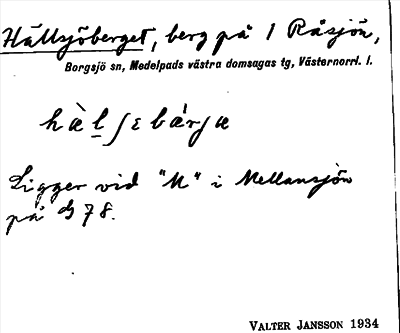 Hällsjöberget, berg på 1 Råsjön,
Borgsjö sn, Medelpads västra domsagas tg, Västernorrl. l.
hälʃɛbärjæ
Ligger vid "M" i Mellansjön
på G 78.
VALTER JANSSON 1934